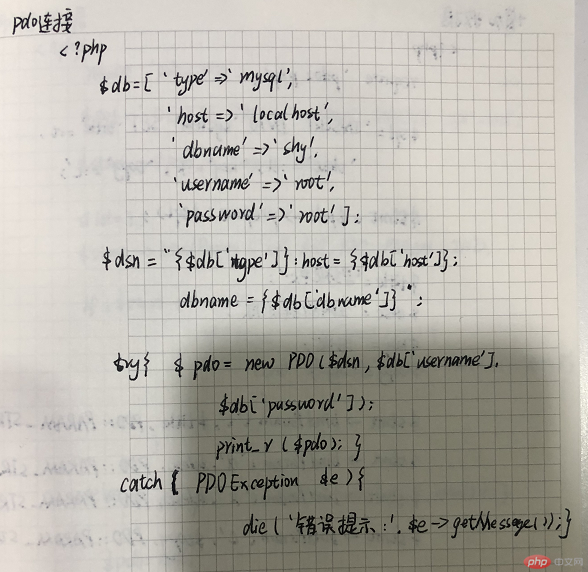 pdo连接
<?php
$db=[ 'type' => 'mysql',
'host => 'localhost',
'dbname' => 'shy',
'username' => 'root',
'password' => 'root' ];
$dsn = "{$db['type']}:host={$db['host']};
dbname = {$db['dbname']}";
try{ $pdo = new PDO($dsn, $db['username'],
$db['password']);
print_r($pdo); }
catch( PDOException $e){
die('错误提示:'.$e->getMessage());}
php 中文网